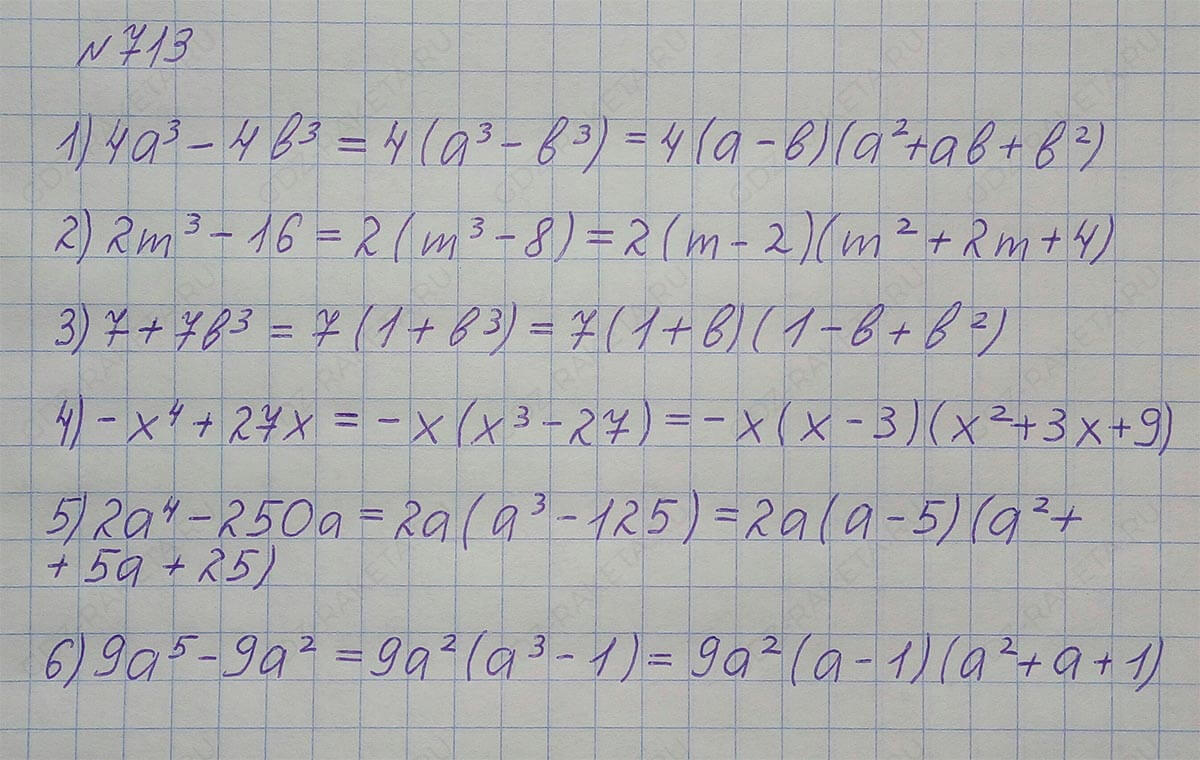 №713
1) 4a³ - 4b³ = 4(a³ - b³) = 4(a - b)(a² + ab + b²)
2) 2m³ - 16 = 2(m³ - 8) = 2(m - 2)(m² + 2m + 4)
3) 7 + 7b³ = 7(1 + b³) = 7(1 + b)(1 - b + b²)
4) -x⁴ + 27x = -x(x³ - 27) = -x(x - 3)(x² + 3x + 9)
5) 2a⁴ - 250a = 2a(a³ - 125) = 2a(a - 5)(a² +
+ 5a + 25)
6) 9a⁵ - 9a² = 9a²(a³ - 1) = 9a²(a - 1)(a² + a + 1)